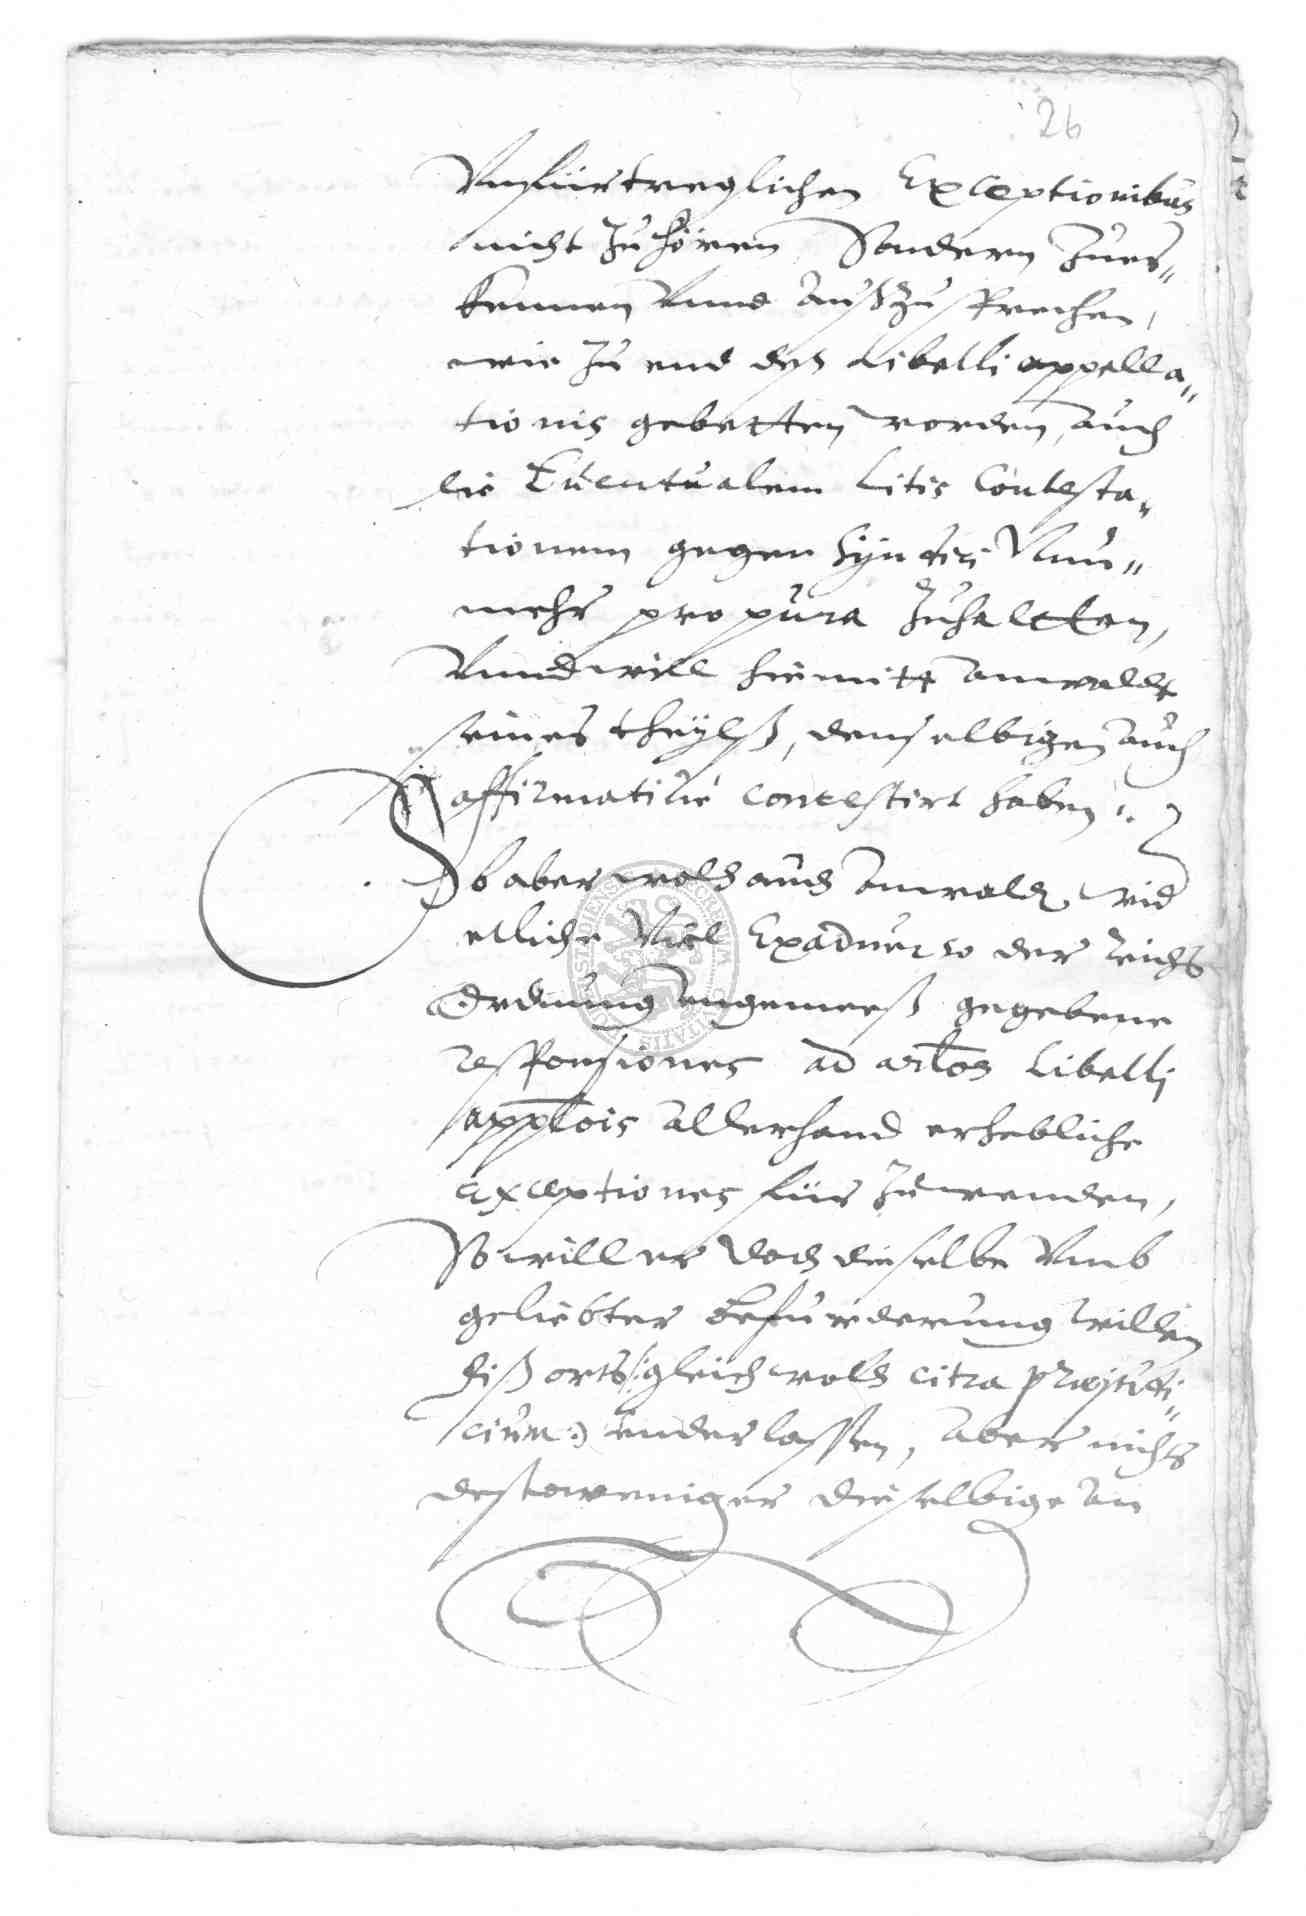 26
Vnfürtreglichen Exceptionibus
nicht zu hören Sondern zuer=
kennen Vnnd außzusprechen,
wie zu end des Libelli appella=
tionis gebetten worden, auch
die Euentualem Litis Contesta=
tionem gegen Nun=
mehr pro pura zuhaltten,
Vnnd will hiemitt anwaldt
seines theylß, denselbigen auch
affirmatiuè contestirt haben
Ob aber wolh auch anwaldt wid
etliche Viel Exaduerso der Reichs
Ordnung Vngemeeß gegebene
responsiones ad artos Libelli
applois allerhand erhebliche
exceptiones für zuwenden,
So will er doch dieselbe Vmb
geliebter befurderung willen
dißorts /: gleich wolh citra præjudi=
cium :) underlassen, aber nichts
destoweniger dieselbige an